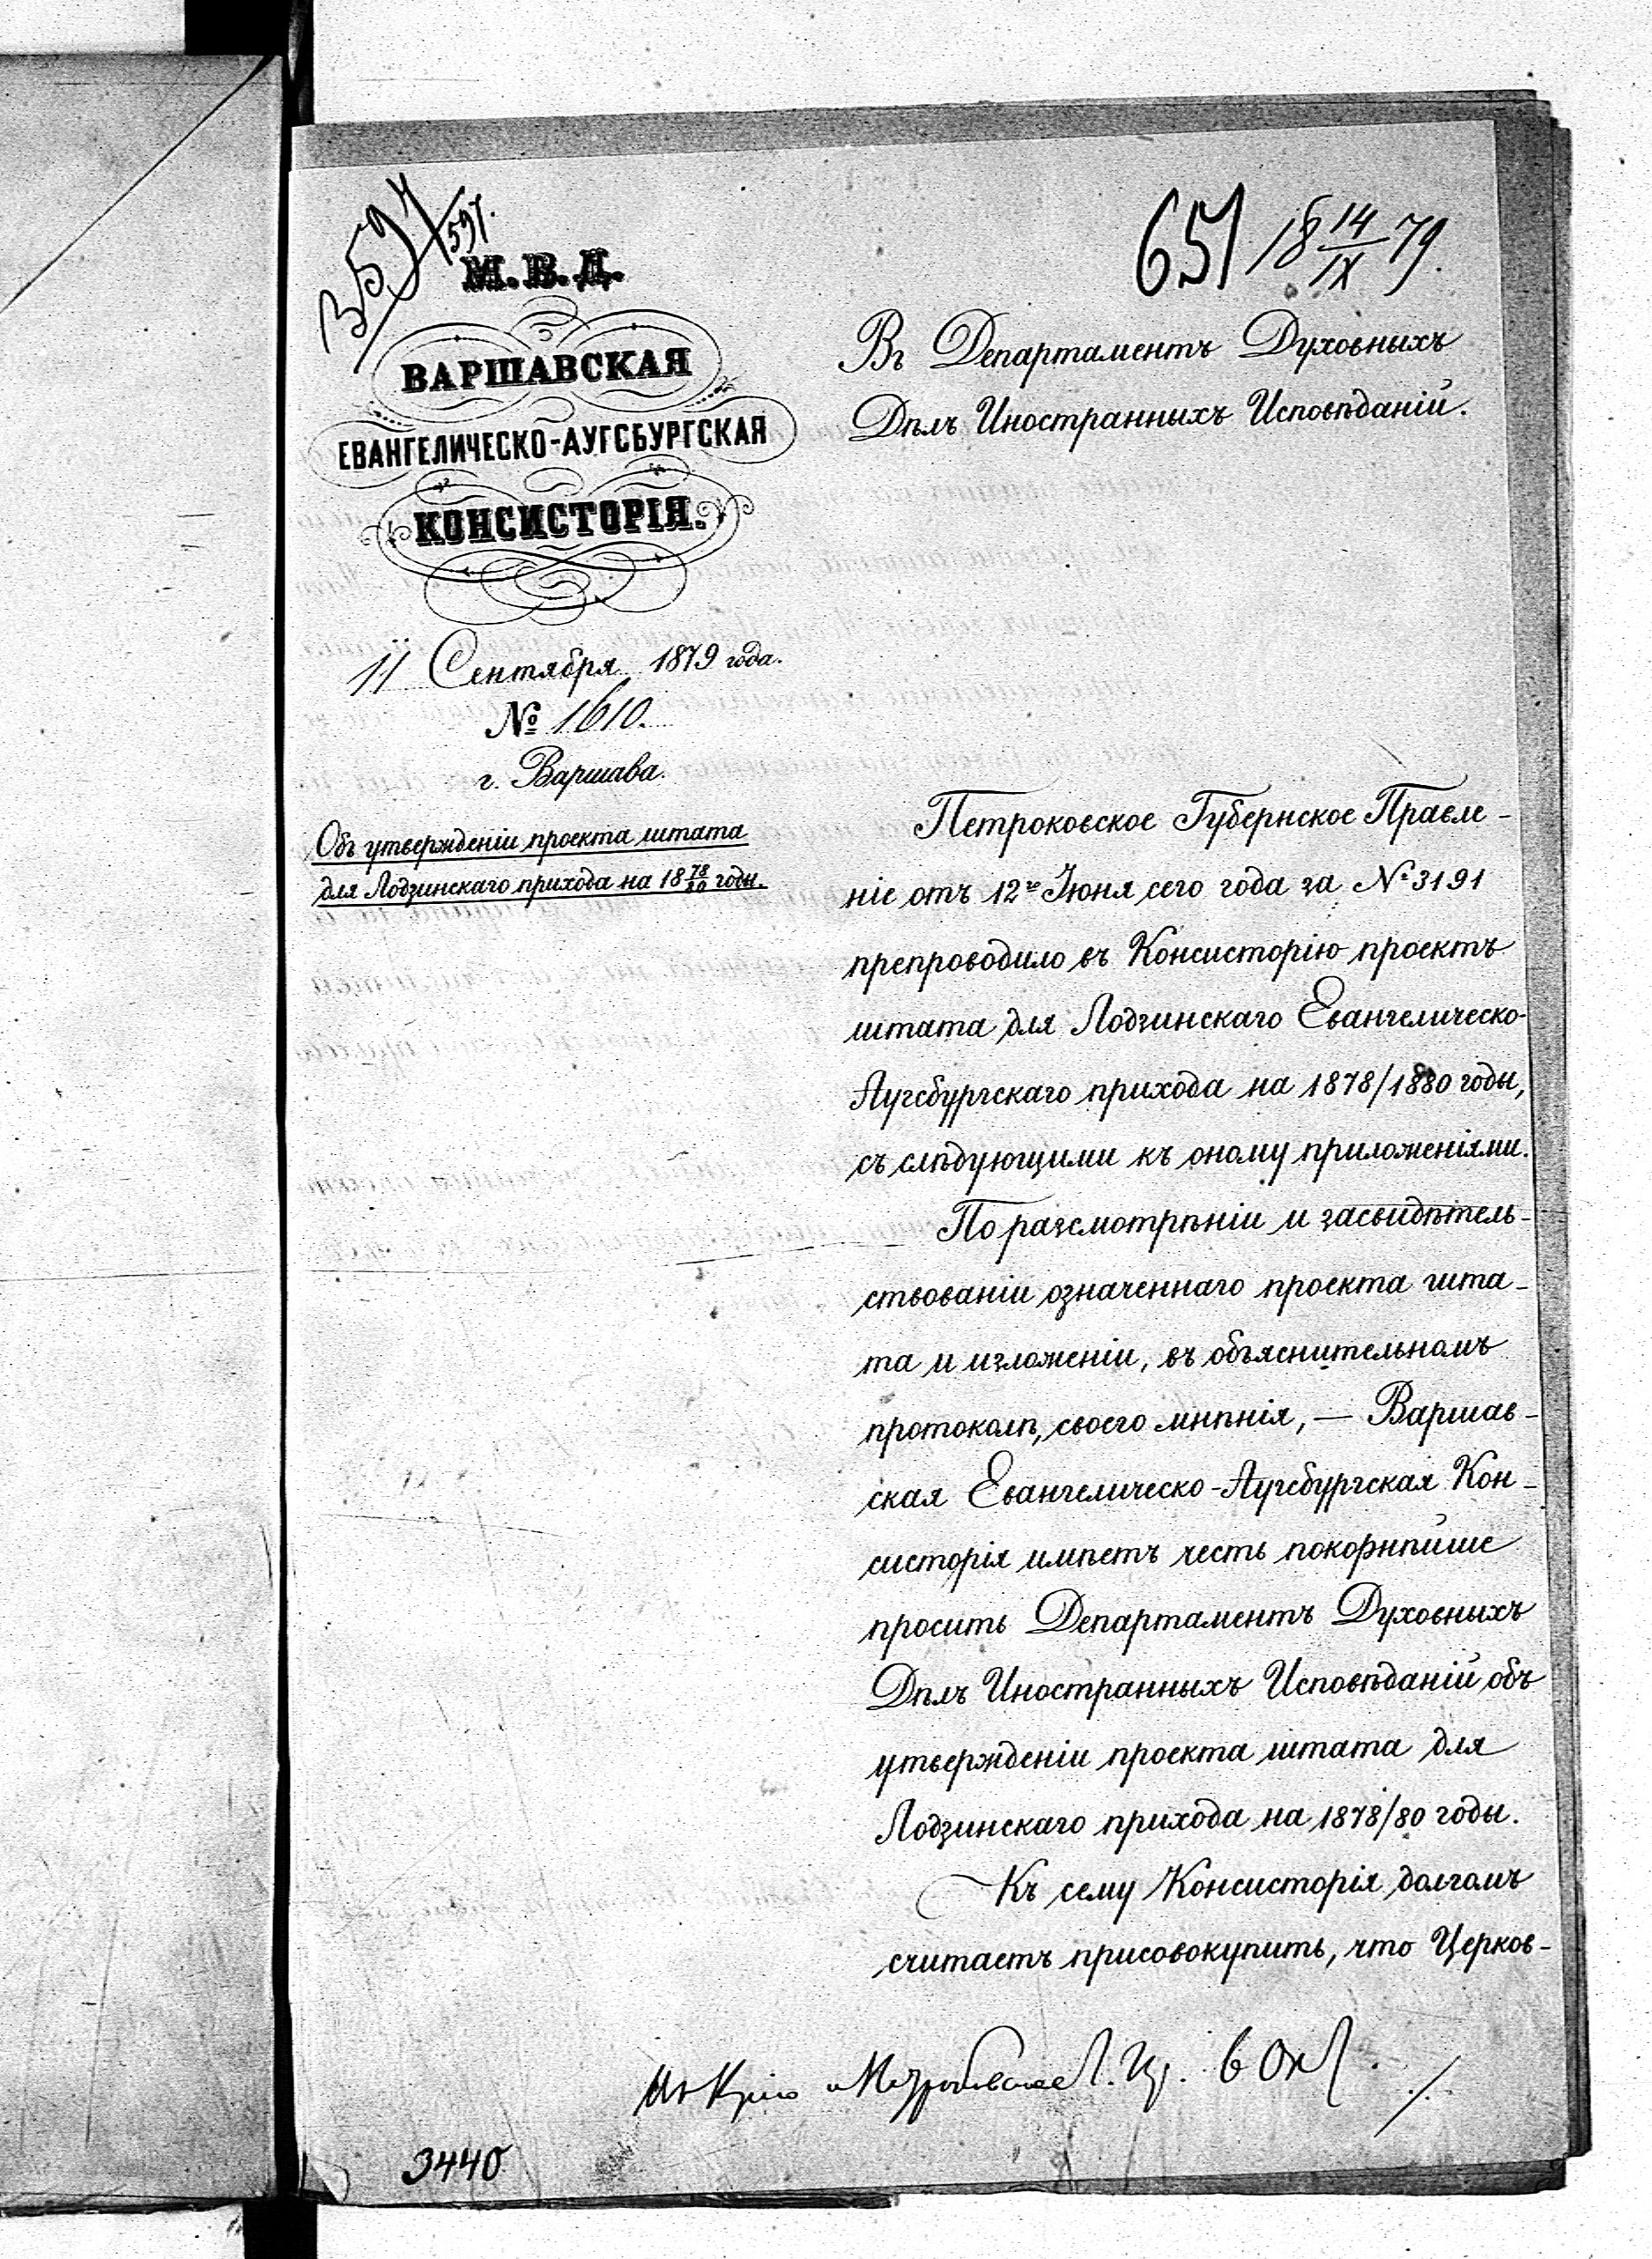 3594/597.
М. В. Д.
ВАРШАВСКАЯ
ЕВАНГЕЛИЧЕСКО-АУГСБУРГСКАЯ
КОНСИСТОРІЯ.
11 Сентября 1879 года.
№ 1610.
г. Варшава.
Объ утвержденіи проекта штата
для Лодзинскаго прихода на 18 78/80 годы.
651 18 14/IX 79.
Въ Департаментъ Духовныхъ
Дѣлъ Иностранныхъ Исповѣданій.
Петроковское Губернское Правле-
ніе отъ 12го Іюня сего года за № 3191
препроводило въ Консисторію проектъ
штата для Лодзинскаго Евангелическо-
Аугсбургскаго прихода на 1878/1880 годы,
съ слѣдующими къ оному приложеніями.
По разсмотрѣніи и засвидѣтель-
ствованіи означеннаго проекта шта-
та и изложеніи, въ объяснительномъ
протоколѣ, своего мнѣнія, — Варшав-
ская Евангелическо-Аугсбургская Кон-
систорія имѣетъ честь покорнѣйше
просить Департаментъ Духовныхъ
Дѣлъ Иностранныхъ Исповѣданій объ
утвержденіи проекта штата для
Лодзинскаго прихода на 1878/80 годы.
Къ сему Консисторія долгомъ
считаетъ присовокупить, что Церков-
3440